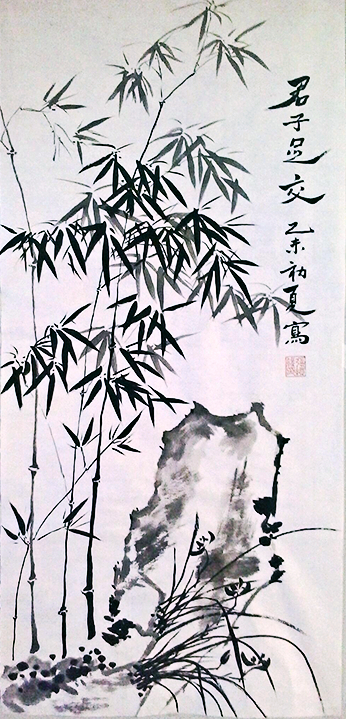 君子是交
乙未初夏寫